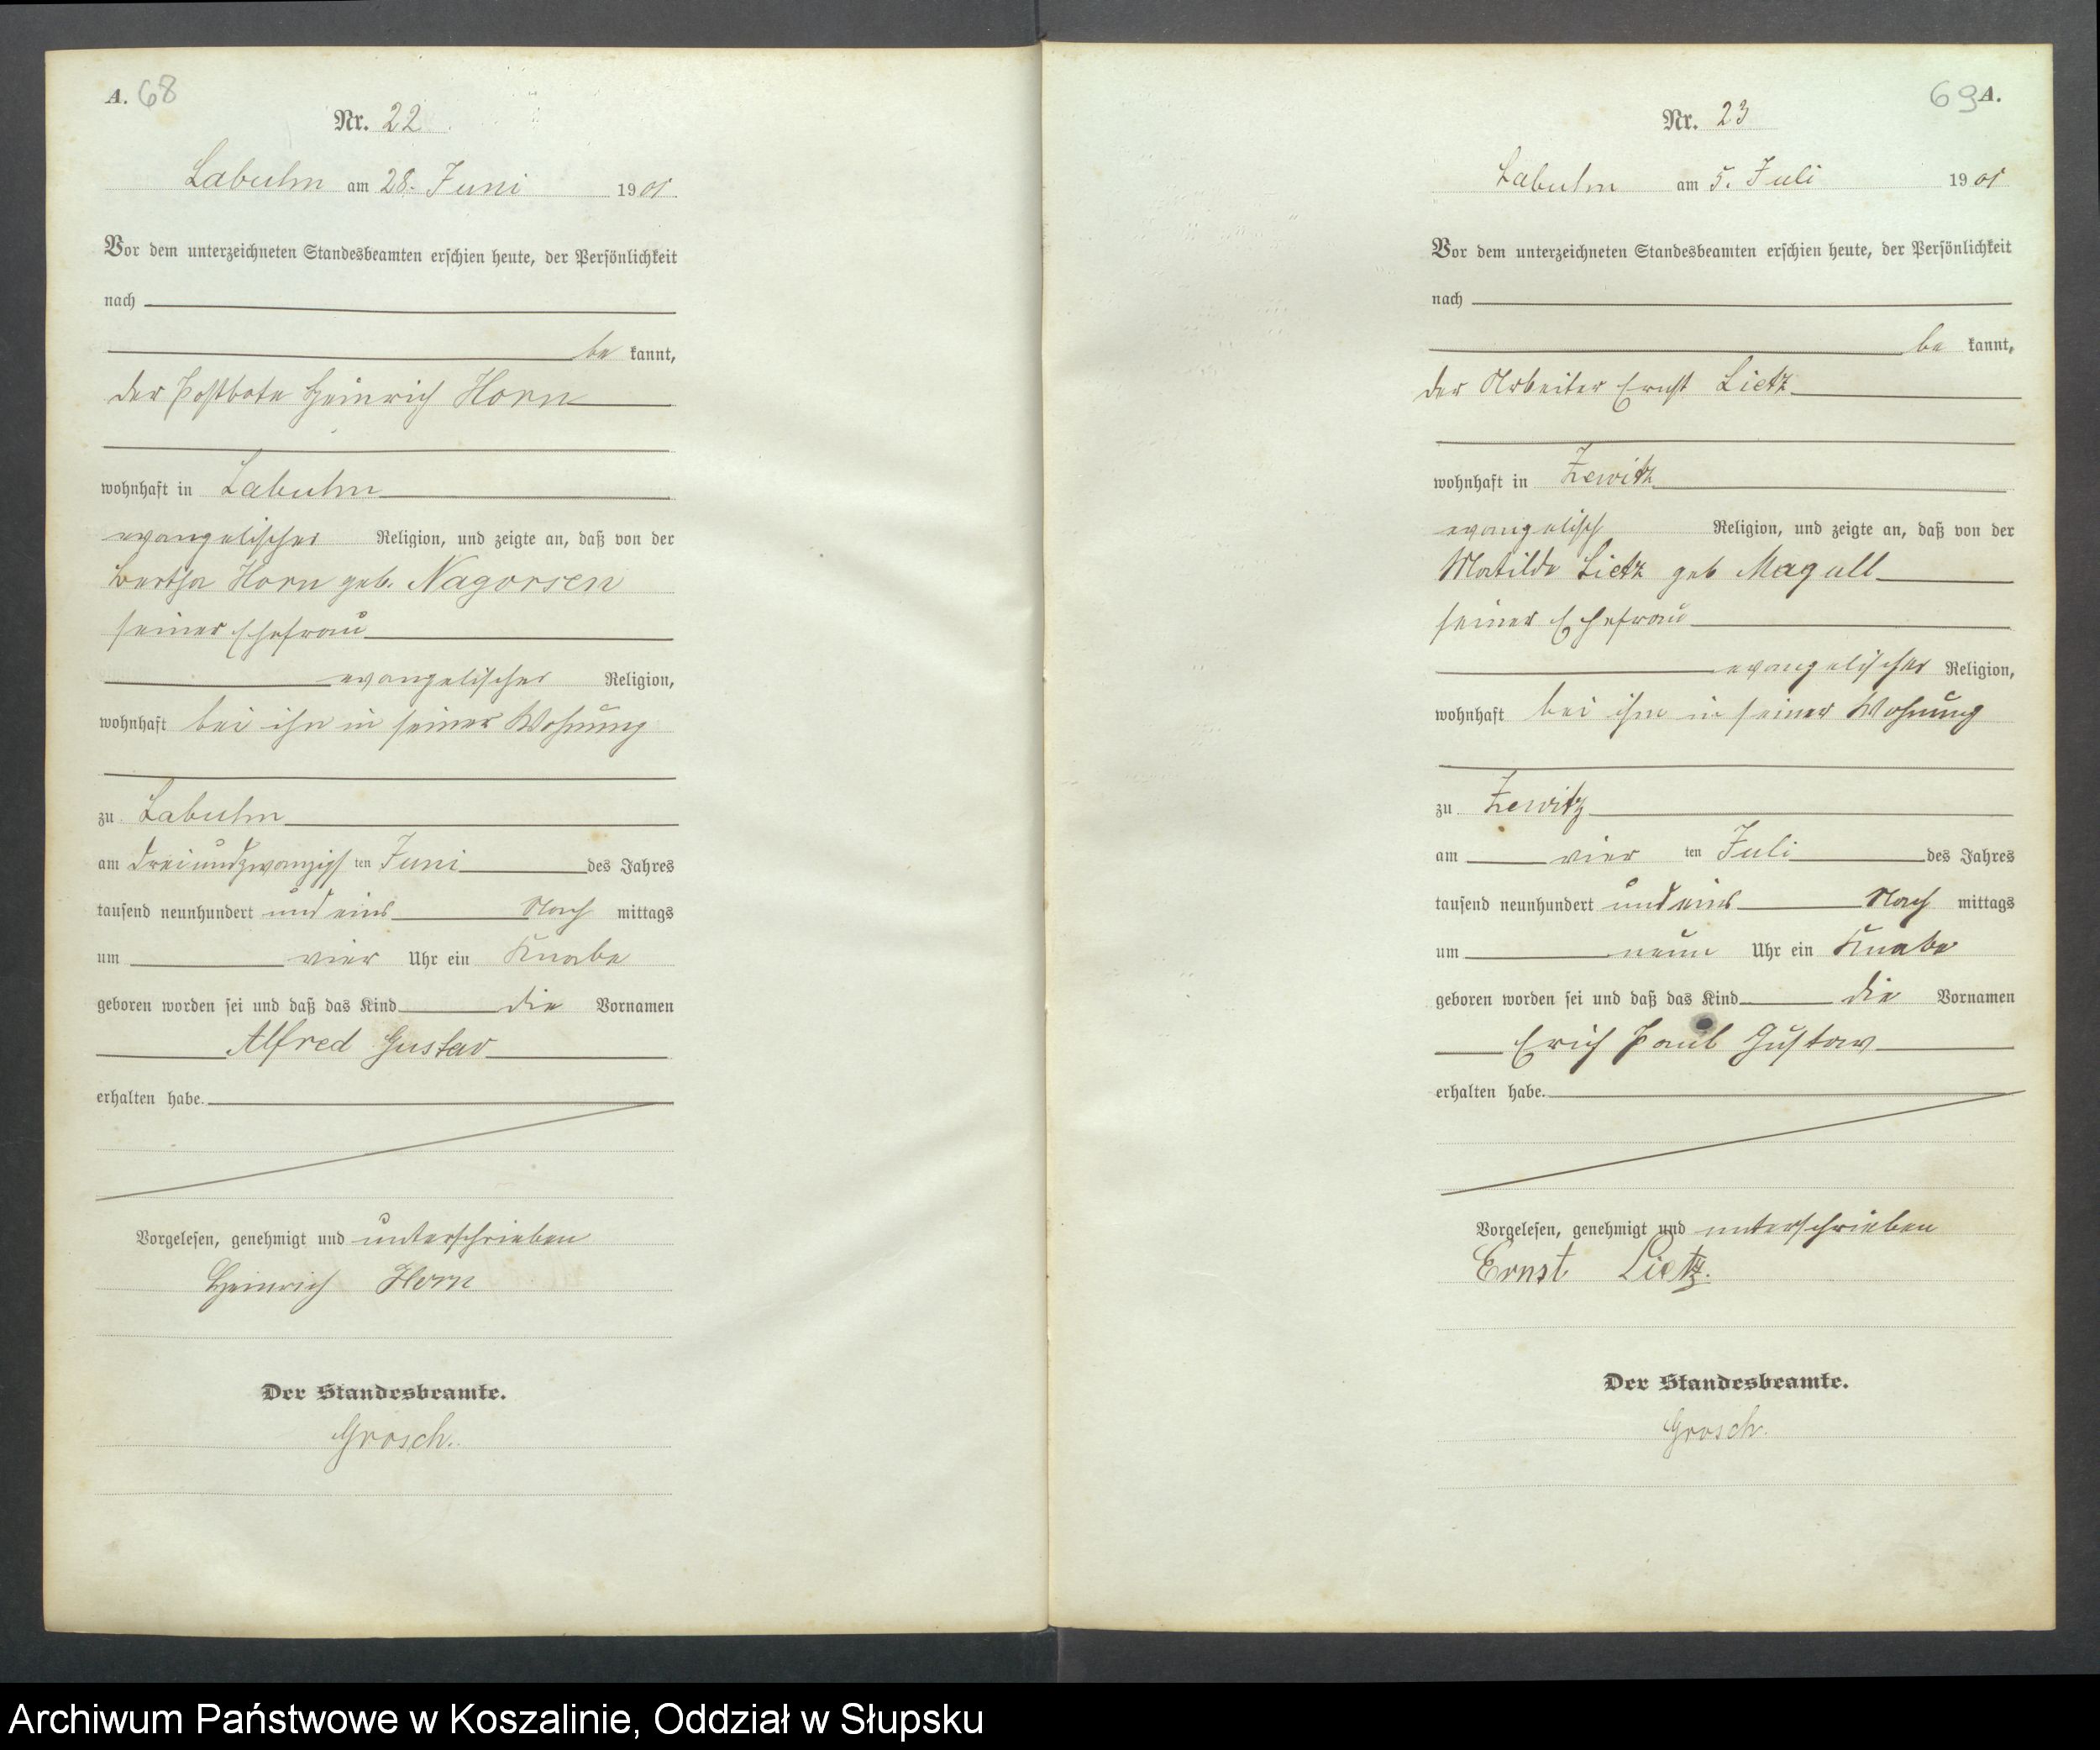 A. 68
Nr. 22
Labuhn am 28. Juni 1901
Vor dem unterzeichneten Standesbeamten erschien heute, der Persönlichkeit
nach
be kannt,
der Postbote Heinrich Horn
wohnhaft in Labuhn
evangelischer Religion, und zeigte an, daß von der
Bertha Horn geb. Nagorsen
seiner Ehefrau
evangelischer Religion,
wohnhaft bei ihn in seiner Wohnung
zu Labuhn
am dreiundzwanzigsten Juni des Jahres
tausend neunhundert und eins Nach mittags
um vier Uhr ein Knabe
geboren worden sei und daß das Kind die Vornamen
Alfred Gustav
erhalten habe.
Vorgelesen, genehmigt und unterschrieben
Heinrich Horn
Der Standesbeamte.
Grosch.
69 A.
Nr. 23
Labuhn am 5. Juli 1901
Vor dem unterzeichneten Standesbeamten erschien heute, der Persönlichkeit
nach
be kannt,
der Arbeiter Ernst Lietz
wohnhaft in Zewitz
evangelisch Religion, und zeigte an, daß von der
Matilde Lietz geb Magull
seiner Ehefrau
evangelischer Religion,
wohnhaft bei ihm in seiner Wohnung
zu Zewitz
am vier ten Juli des Jahres
tausend neunhundert und eins Nach mittags
um neun Uhr ein Knabe
geboren worden sei und daß das Kind die Vornamen
Erich Paul Gustav
erhalten habe.
Vorgelesen, genehmigt und unterschrieben
Ernst Lietz.
Der Standesbeamte.
Grosch.
Archiwum Państwowe w Koszalinie, Oddział w Słupsku